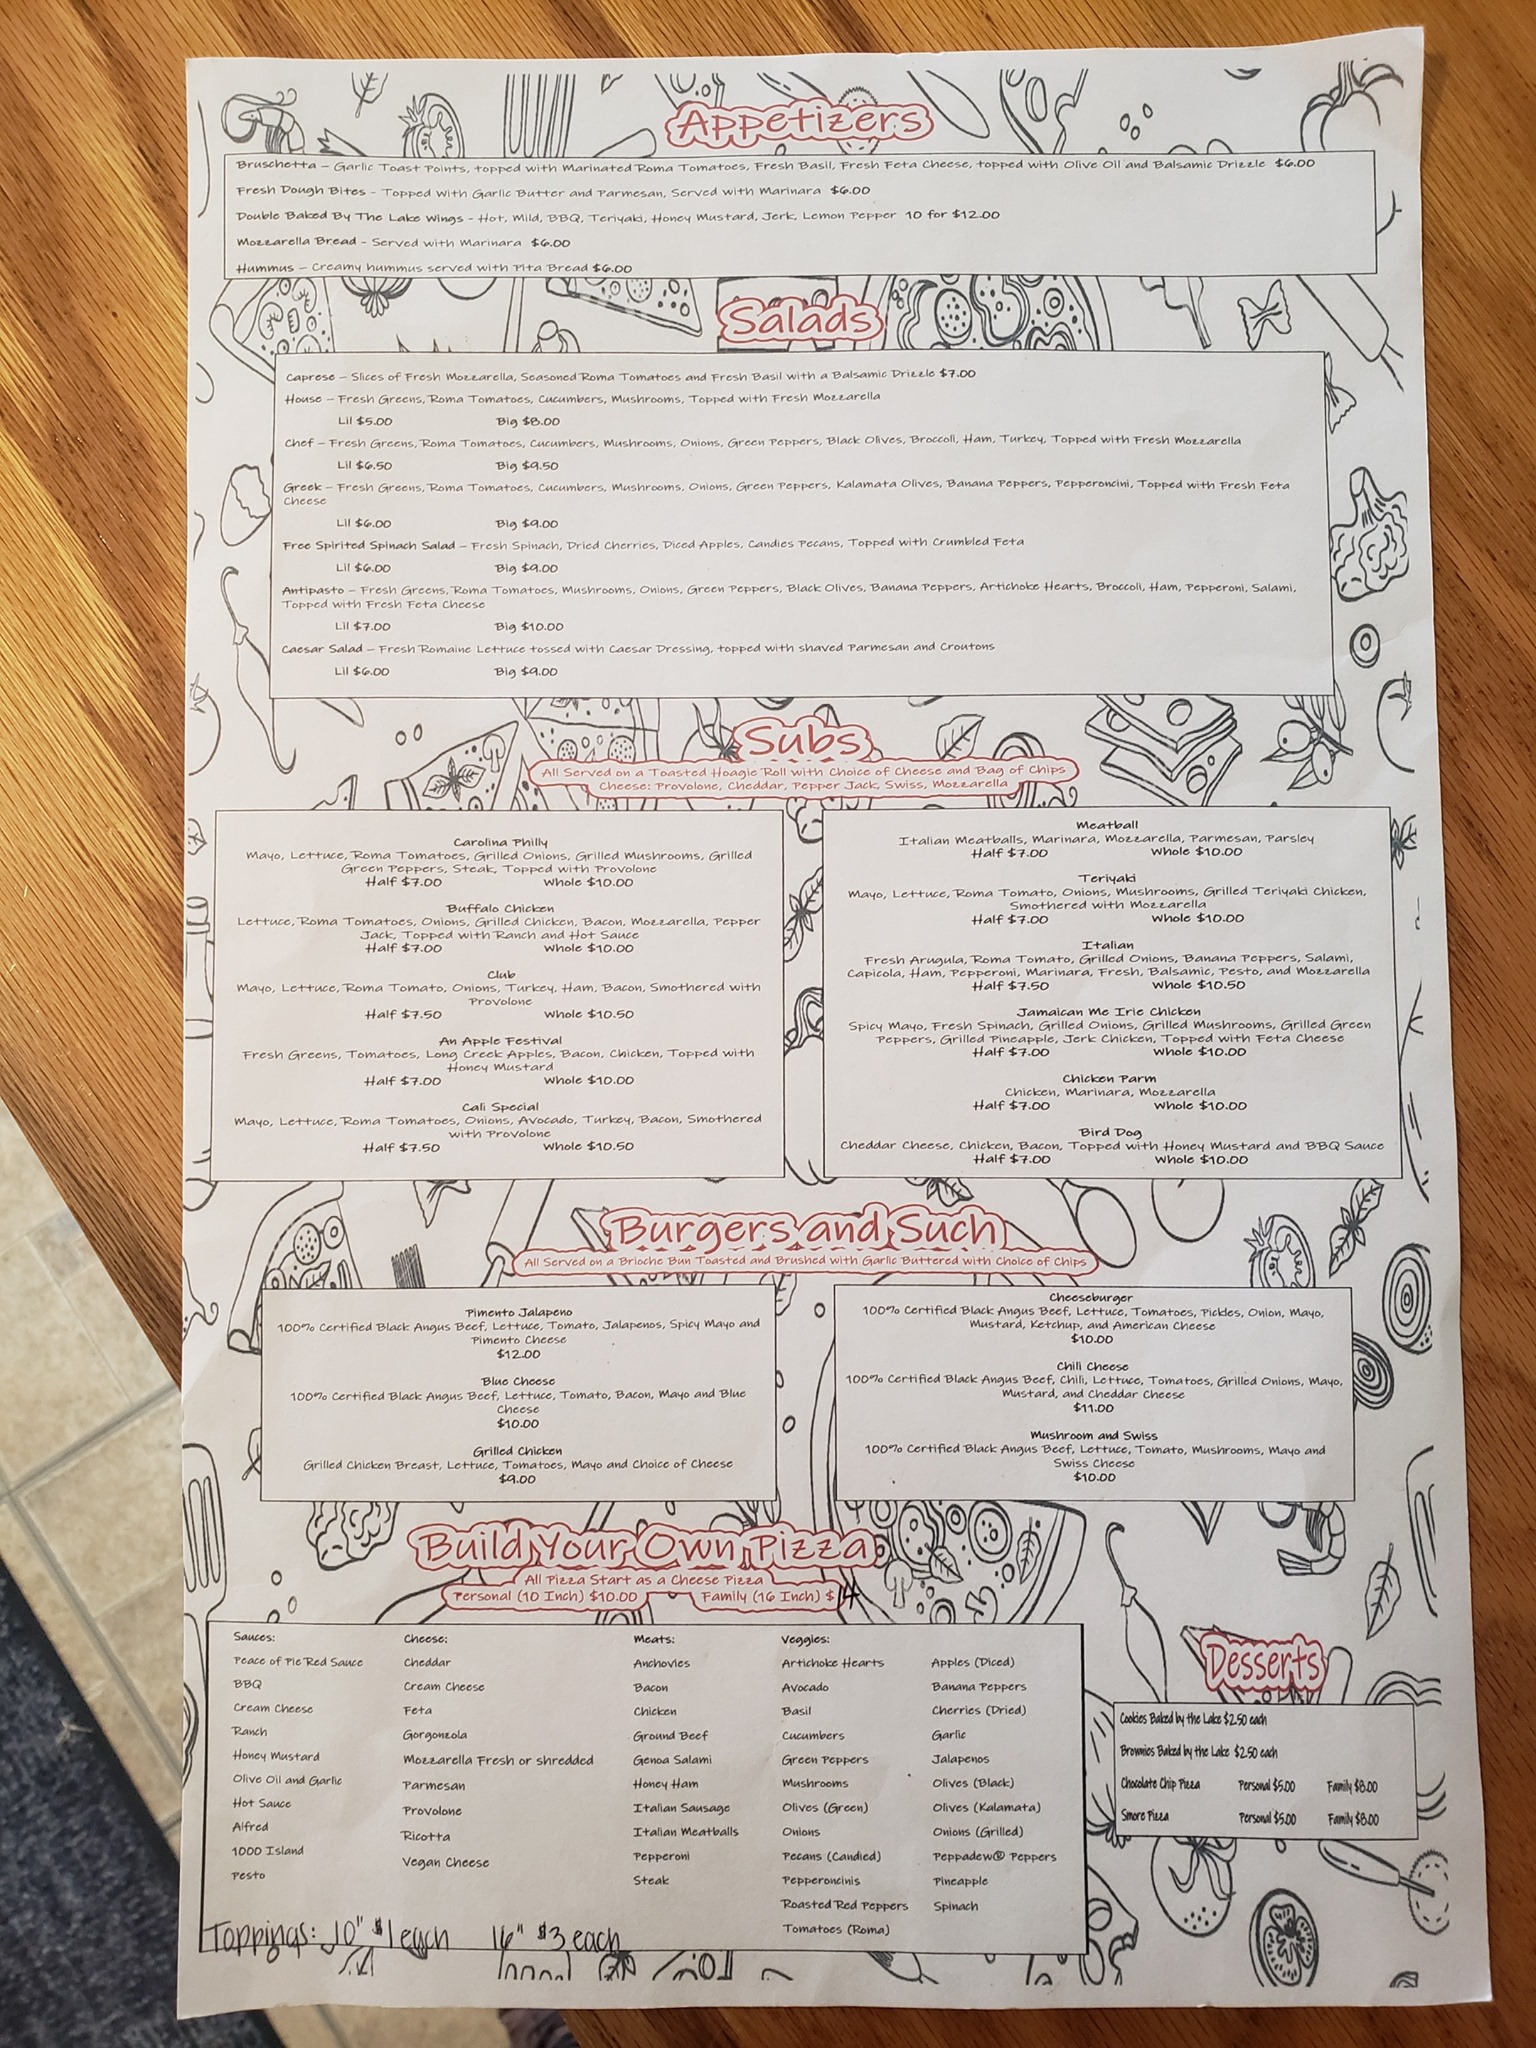 Appetizers
Bruschetta – Garlic Toast Points, topped with Marinated Roma Tomatoes, Fresh Basil, Fresh Feta Cheese, topped with Olive Oil and Balsamic Drizzle $6.00
Fresh Dough Bites - Topped With Garlic Butter and Parmesan, Served with Marinara $6.00
Double Baked By The Lake Wings - Hot, Mild, BBQ, Teriyaki, Honey Mustard, Jerk, Lemon Pepper 10 for $12.00
Mozzarella Bread - Served with Marinara $6.00
Hummus – Creamy hummus served with Pita Bread $6.00
Salads
Caprese – Slices of Fresh Mozzarella, Seasoned Roma Tomatoes and Fresh Basil with a Balsamic Drizzle $7.00
House – Fresh Greens, Roma Tomatoes, Cucumbers, Mushrooms, Topped with Fresh Mozzarella
Lil $5.00 Big $8.00
Chef – Fresh Greens, Roma Tomatoes, Cucumbers, Mushrooms, Onions, Green Peppers, Black Olives, Broccoli, Ham, Turkey, Topped with Fresh Mozzarella
Lil $6.50 Big $9.50
Greek – Fresh Greens, Roma Tomatoes, Cucumbers, Mushrooms, Onions, Green Peppers, Kalamata Olives, Banana Peppers, Pepperoncini, Topped with Fresh Feta
Cheese
Lil $6.00 Big $9.00
Free Spirited Spinach Salad – Fresh Spinach, Dried Cherries, Diced Apples, Candies Pecans, Topped with Crumbled Feta
Lil $6.00 Big $9.00
Antipasto – Fresh Greens, Roma Tomatoes, Mushrooms, Onions, Green Peppers, Black Olives, Banana Peppers, Artichoke Hearts, Broccoli, Ham, Pepperoni, Salami,
Topped with Fresh Feta Cheese
Lil $7.00 Big $10.00
Caesar Salad – Fresh Romaine Lettuce tossed with Caesar Dressing, topped with shaved Parmesan and Croutons
Lil $6.00 Big $9.00
Subs
All Served on a Toasted Hoagie Roll with Choice of Cheese and Bag of Chips
Cheese: Provolone, Cheddar, Pepper Jack, Swiss, Mozzarella
Carolina Philly
Mayo, Lettuce, Roma Tomatoes, Grilled Onions, Grilled Mushrooms, Grilled
Green Peppers, Steak, Topped with Provolone
Half $7.00 Whole $10.00
Buffalo Chicken
Lettuce, Roma Tomatoes, Onions, Grilled Chicken, Bacon, Mozzarella, Pepper
Jack, Topped with Ranch and Hot Sauce
Half $7.00 Whole $10.00
Club
Mayo, Lettuce, Roma Tomato, Onions, Turkey, Ham, Bacon, Smothered with
Provolone
Half $7.50 Whole $10.50
An Apple Festival
Fresh Greens, Tomatoes, Long Creek Apples, Bacon, Chicken, Topped with
Honey Mustard
Half $7.00 Whole $10.00
Cali Special
Mayo, Lettuce, Roma Tomatoes, Onions, Avocado, Turkey, Bacon, Smothered
with Provolone
Half $7.50 Whole $10.50
Meatball
Italian Meatballs, Marinara, Mozzarella, Parmesan, Parsley
Half $7.00 Whole $10.00
Teriyaki
Mayo, Lettuce, Roma Tomato, Onions, Mushrooms, Grilled Teriyaki Chicken,
Smothered with Mozzarella
Half $7.00 Whole $10.00
Italian
Fresh Arugula, Roma Tomato, Grilled Onions, Banana Peppers, Salami,
Capicola, Ham, Pepperoni, Marinara, Fresh, Balsamic, Pesto, and Mozzarella
Half $7.50 Whole $10.50
Jamaican Me Irie Chicken
Spicy Mayo, Fresh Spinach, Grilled Onions, Grilled Mushrooms, Grilled Green
Peppers, Grilled Pineapple, Jerk Chicken, Topped with Feta Cheese
Half $7.00 Whole $10.00
Chicken Parm
Chicken, Marinara, Mozzarella
Half $7.00 Whole $10.00
Bird Dog
Cheddar Cheese, Chicken, Bacon, Topped with Honey Mustard and BBQ Sauce
Half $7.00 Whole $10.00
Burgers and Such
All Served on a Brioche Bun Toasted and Brushed with Garlic Buttered with Choice of Chips
Pimento Jalapeno
100% Certified Black Angus Beef, Lettuce, Tomato, Jalapenos, Spicy Mayo and
Pimento Cheese
$12.00
Blue Cheese
100% Certified Black Angus Beef, Lettuce, Tomato, Bacon, Mayo and Blue
Cheese
$10.00
Grilled Chicken
Grilled Chicken Breast, Lettuce, Tomatoes, Mayo and Choice of Cheese
$9.00
Cheeseburger
100% Certified Black Angus Beef, Lettuce, Tomatoes, Pickles, Onion, Mayo,
Mustard, Ketchup, and American Cheese
$10.00
Chili Cheese
100% Certified Black Angus Beef, Chili, Lettuce, Tomatoes, Grilled Onions, Mayo,
Mustard, and Cheddar Cheese
$11.00
Mushroom and Swiss
100% Certified Black Angus Beef, Lettuce, Tomato, Mushrooms, Mayo and
Swiss Cheese
$10.00
Build Your Own Pizza
All Pizza Start as a Cheese Pizza
Personal (10 Inch) $10.00 Family (16 Inch) $14
Sauces:
Peace of Pie Red Sauce
BBQ
Cream Cheese
Ranch
Honey Mustard
Olive Oil and Garlic
Hot Sauce
Alfred
1000 Island
Pesto
Cheese:
Cheddar
Cream Cheese
Feta
Gorgonzola
Mozzarella Fresh or shredded
Parmesan
Provolone
Ricotta
Vegan Cheese
Meats:
Anchovies
Bacon
Chicken
Ground Beef
Genoa Salami
Honey Ham
Italian Sausage
Italian Meatballs
Pepperoni
Steak
Veggies:
Artichoke Hearts
Avocado
Basil
Cucumbers
Green Peppers
Mushrooms
Olives (Green)
Onions
Pecans (Candied)
Pepperoncinis
Roasted Red Peppers
Tomatoes (Roma)
Apples (Diced)
Banana Peppers
Cherries (Dried)
Garlic
Jalapenos
Olives (Black)
Olives (Kalamata)
Onions (Grilled)
Peppadew® Peppers
Pineapple
Spinach
Toppings: 10" $1 each 16" $3 each
Desserts
Cookies Baked by the Lake $2.50 each
Brownies Baked by the Lake $2.50 each
Chocolate Chip Pizza Personal $5.00 Family $8.00
Smore Pizza Personal $5.00 Family $8.00